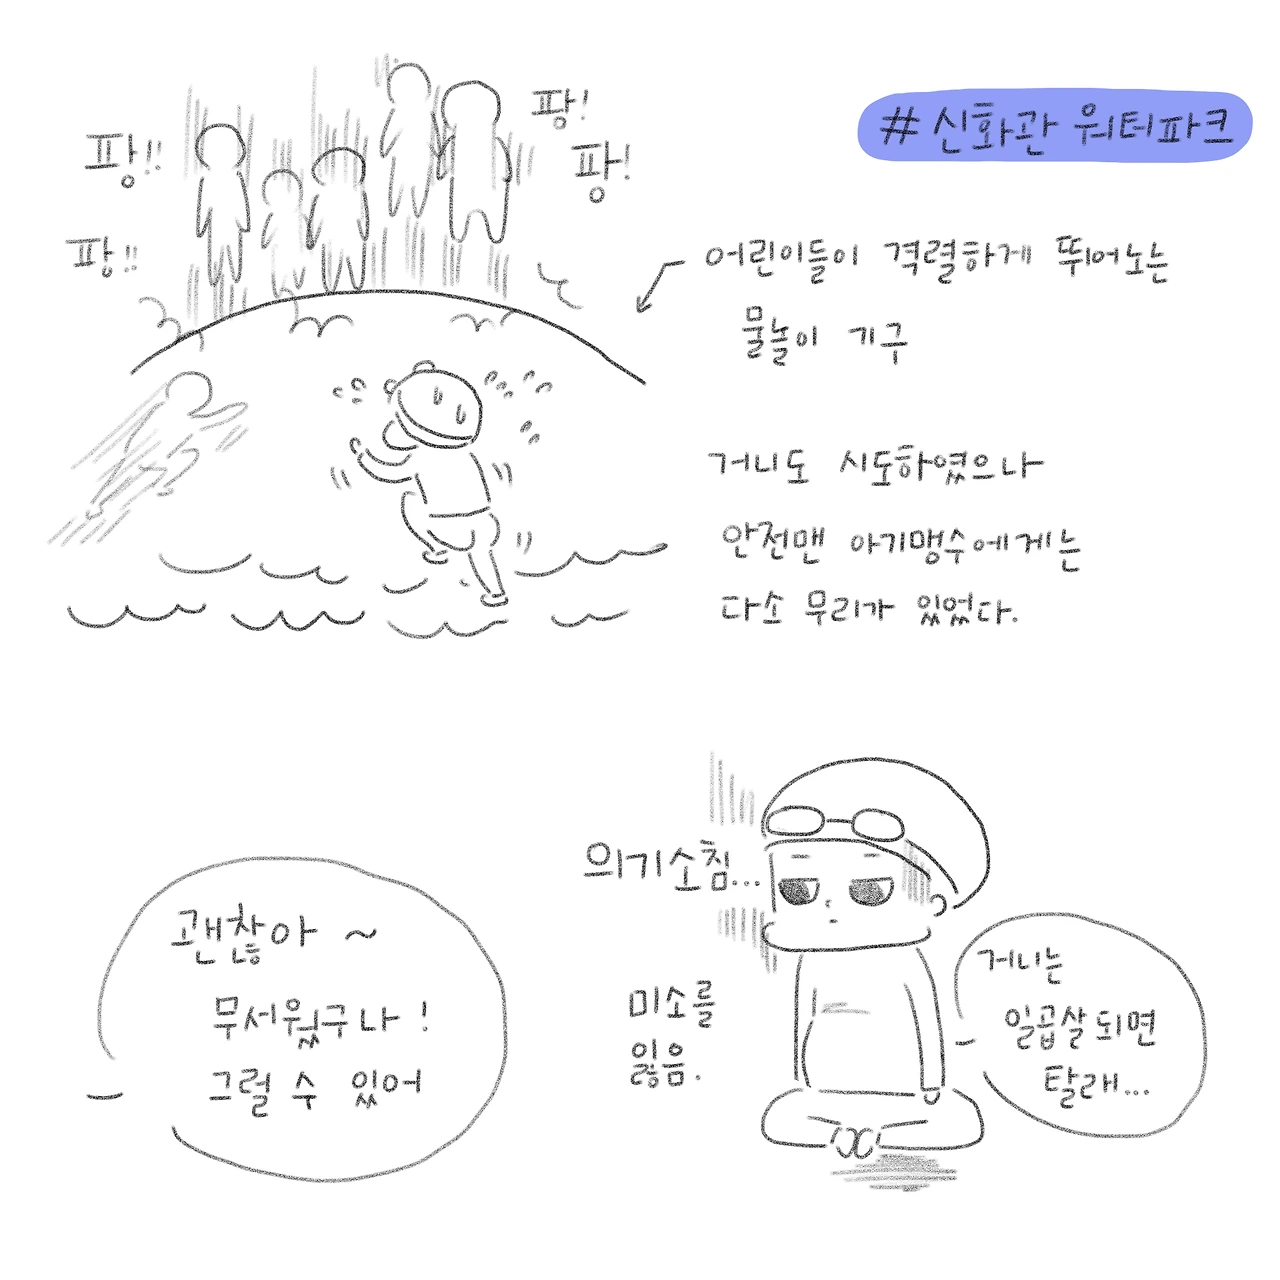 # 신화관 워터파크
팡!!
팡!!
팡!
팡!
어린이들이 격렬하게 뛰어노는
물놀이 기구
거니도 시도하였으나
안전맨 아기맹수에게는
다소 무리가 있었다.
괜찮아 ~
무서웠구나 !
그럴 수 있어
의기소침...
미소를
잃음.
거니는
일곱살 되면
탈래...